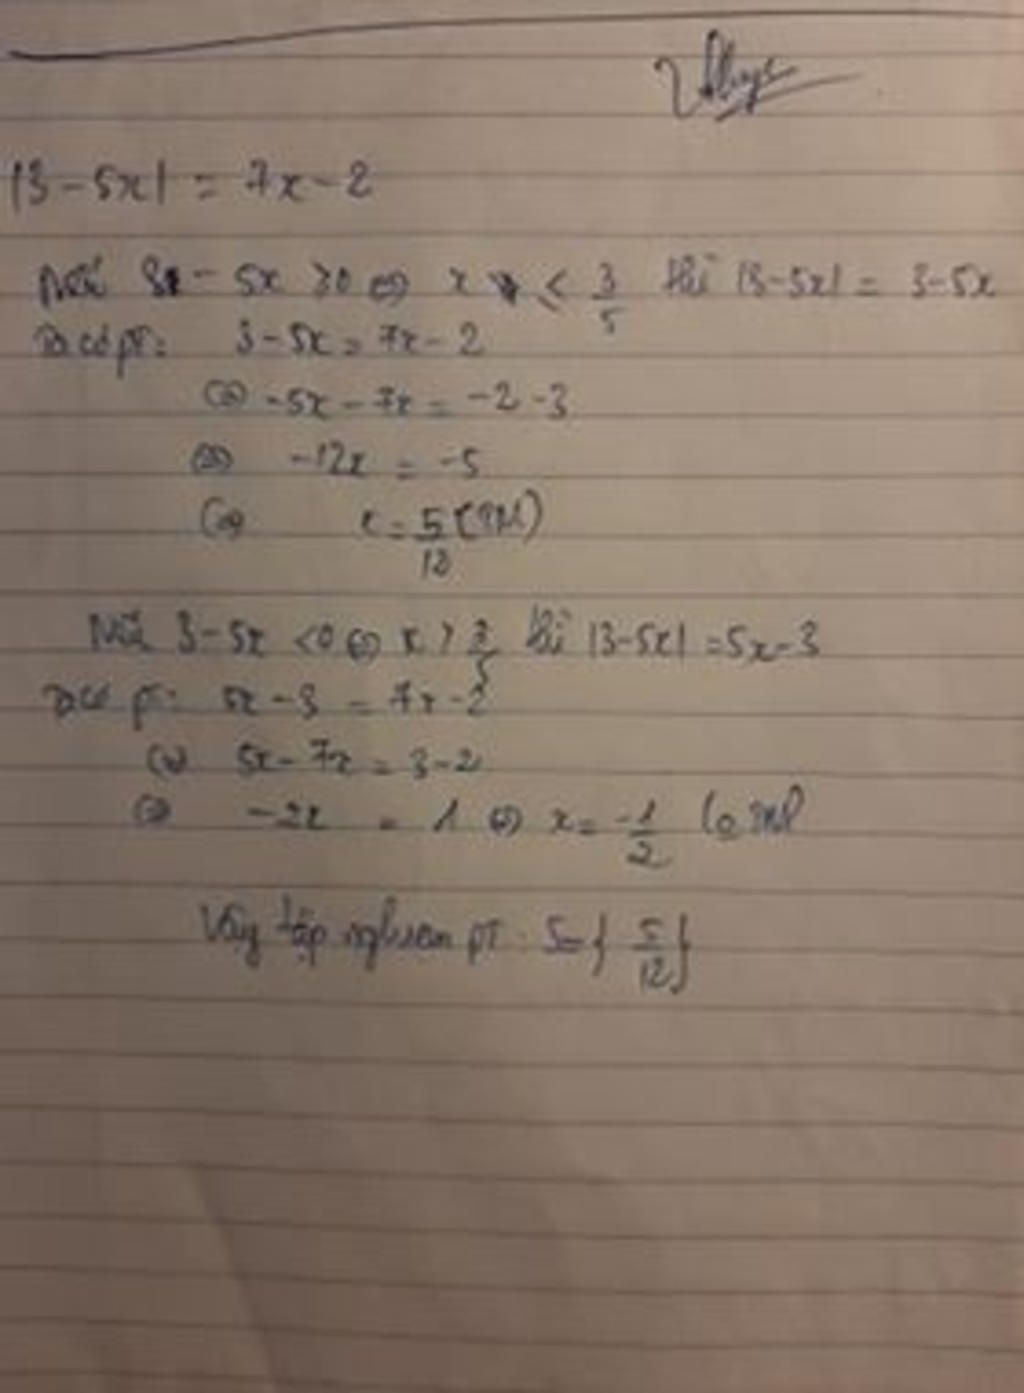 |3-5x| = 7x-2
Nếu 3 - 5x ≥ 0 ⇔ x ≤ 3/5 thì |3-5x| = 3-5x
Ta có pt: 3-5x = 7x-2
⇔ -5x - 7x = -2 -3
⇔ -12x = -5
⇔ x = 5/12 (TM)
Nếu 3-5x < 0 ⇔ x > 3/5 thì |3-5x| = 5x-3
Ta có pt: 5x-3 = 7x-2
⇔ 5x-7x = 3-2
⇔ -2x = 1 ⇔ x = -1/2
Vậy tập nghiem pt S={5/12}